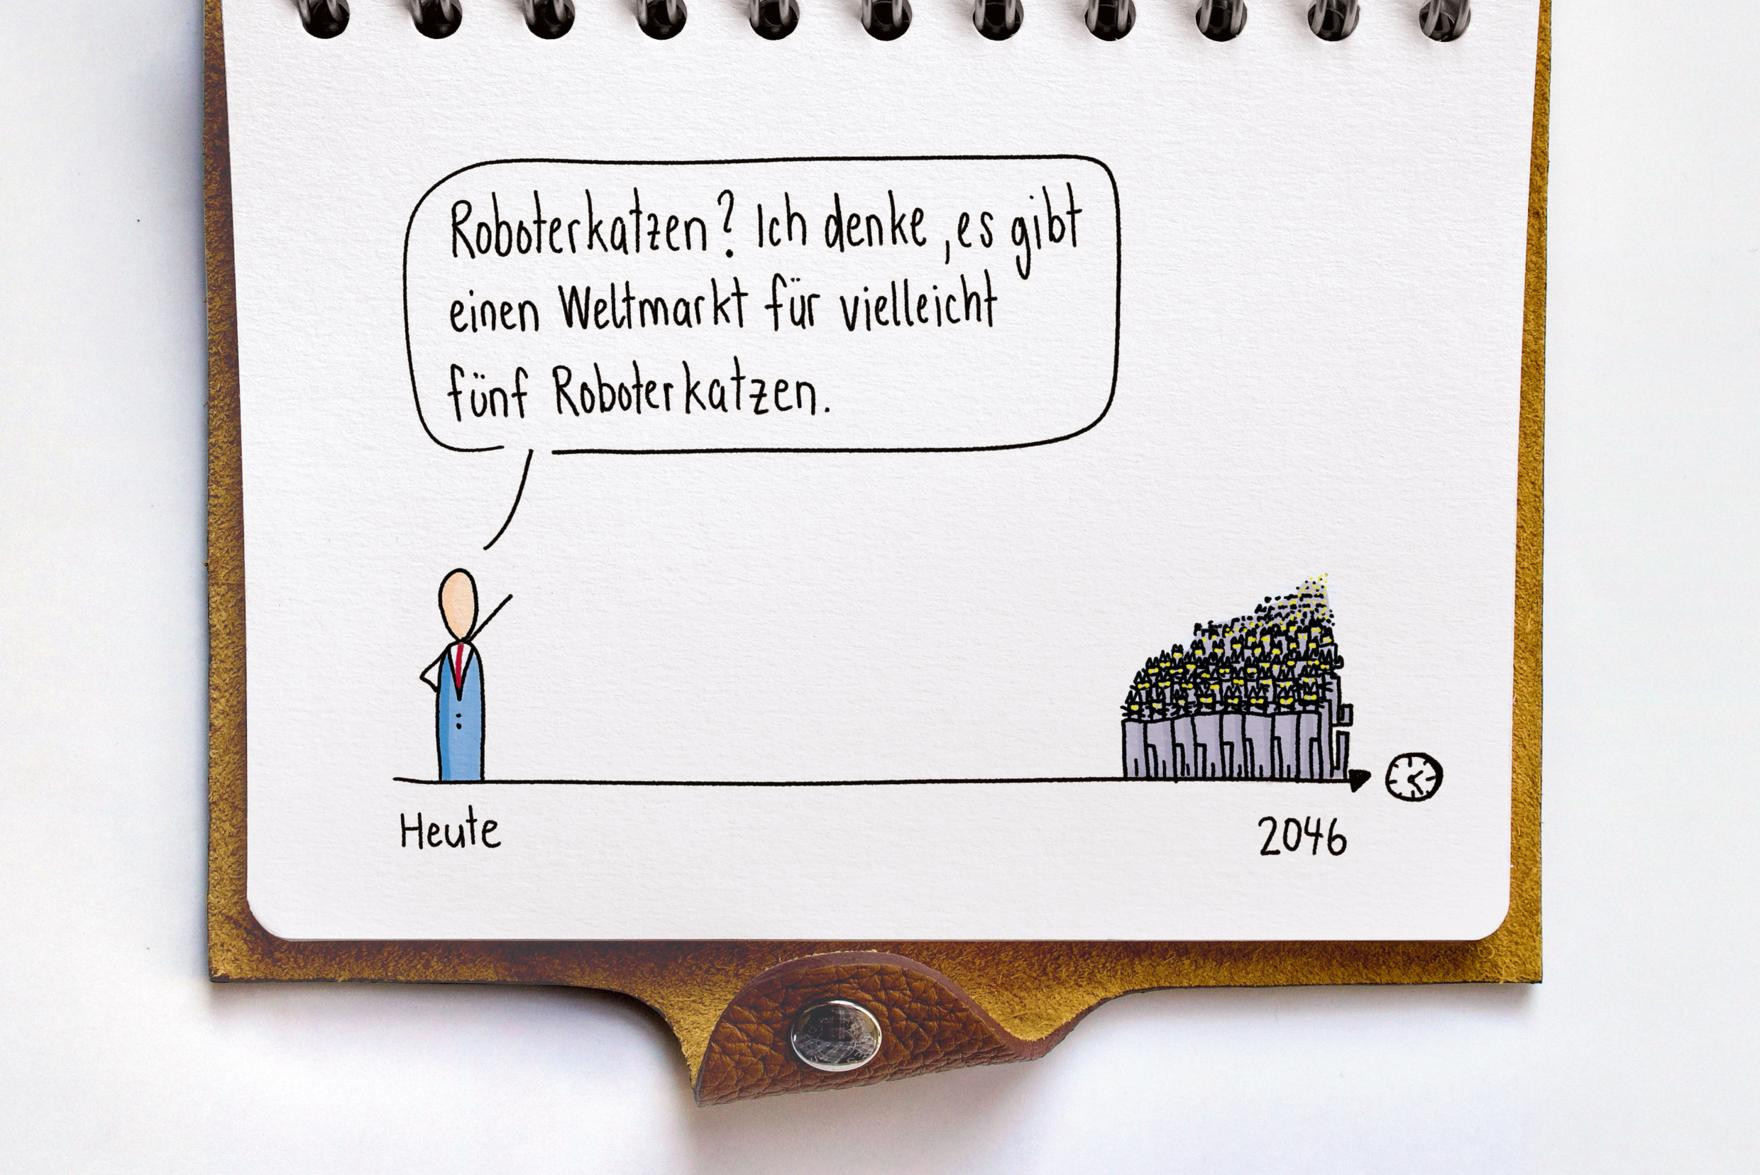 Roboterkatzen? Ich denke, es gibt
einen Weltmarkt für vielleicht
fünf Roboterkatzen.
Heute
2046